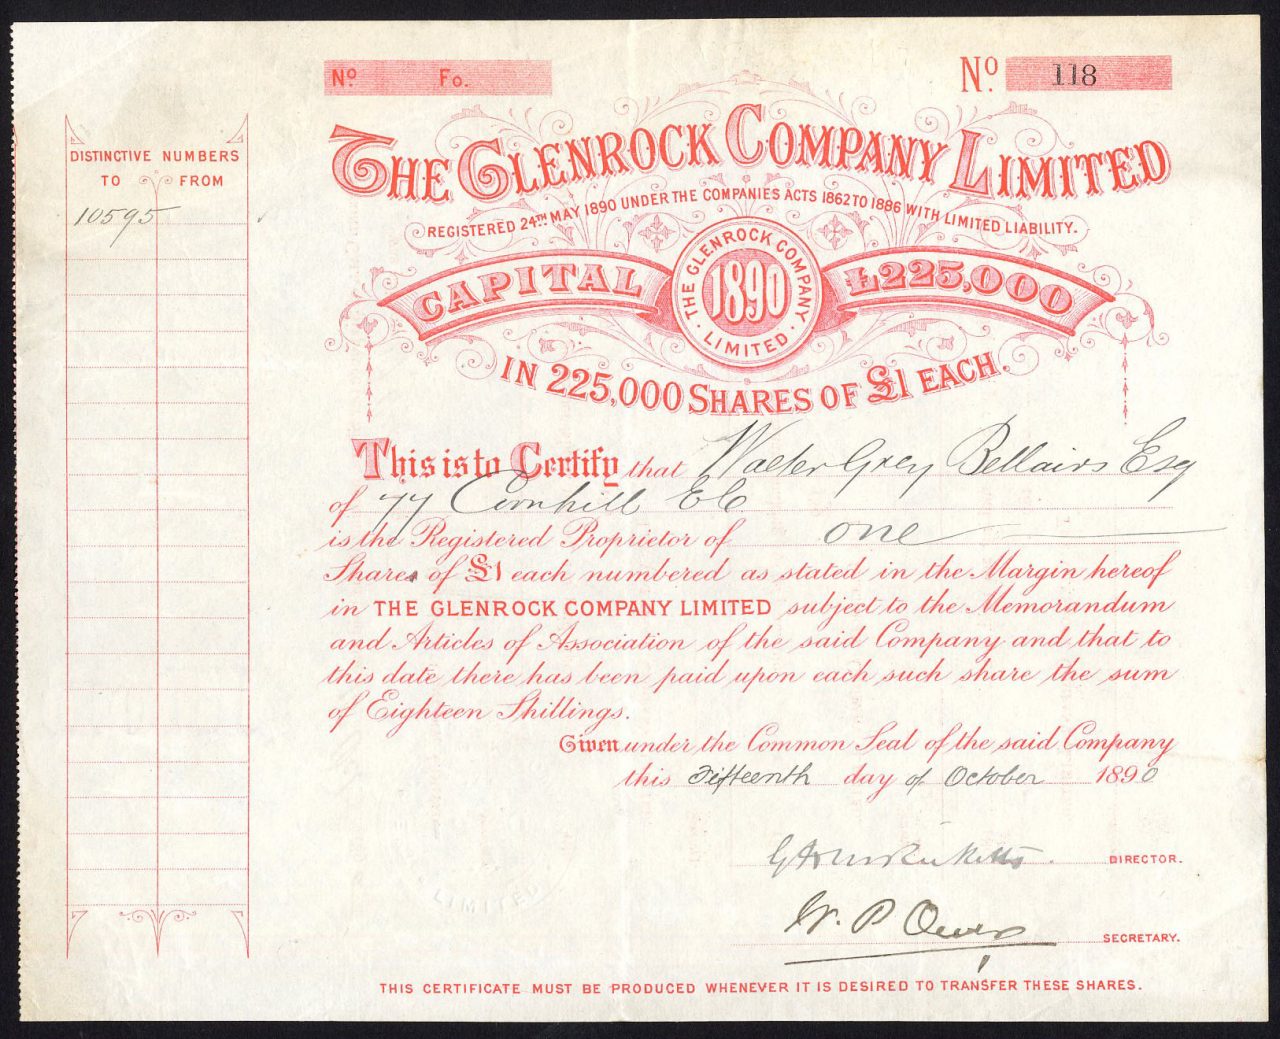 No. Fo.
No. 118
DISTINCTIVE NUMBERS
TO FROM
10595
THE GLENROCK COMPANY LIMITED
REGISTERED 24TH MAY 1890 UNDER THE COMPANIES ACTS 1862 TO 1886 WITH LIMITED LIABILITY.
CAPITAL £225,000
THE GLENROCK COMPANY
1890
LIMITED
IN 225,000 SHARES OF £1 EACH.
This is to Certify that Walter Grey Bellairs Esq
of 77 Cornhill EC
is the Registered Proprietor of one
Share of £1 each numbered as stated in the Margin hereof
in THE GLENROCK COMPANY LIMITED subject to the Memorandum
and Articles of Association of the said Company and that to
this date there has been paid upon each such share the sum
of Eighteen Shillings.
Given under the Common Seal of the said Company
this Fifteenth day of October 1890
DIRECTOR.
W. P. Owen
SECRETARY.
LIMITED
THIS CERTIFICATE MUST BE PRODUCED WHENEVER IT IS DESIRED TO TRANSFER THESE SHARES.